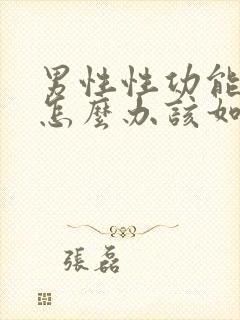 男性性功能
怎麼办該如
張磊